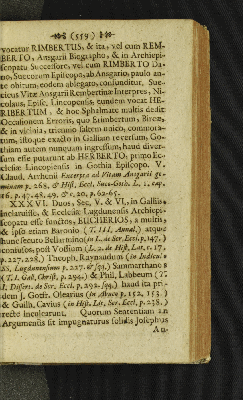 (559)
vocatur RIMBERTUS, & ita, vel cum REM-
BERTO, Ansgarii Biographo, & in Archiepi-
scopatu Successore, vel cum RIMBERTO Da-
no, Suecorum Episcopo, ab Ansgario, paulo an-
te obitum, eodem ablegato, confunditur. Sue-
ticus Vitæ Ansgarii Rembertinæ Interpres, Ni-
colaus, Episc. Lincopensis, eundem vocat HE-
RIBERTUM, & hoc Sphalmate multis dedit
Occasionem Erroris, quo Erimbertum, Bircæ,
& in vicinia, triennio saltem unico, commora-
tum, istoque exacto in Galliam reversum, Go-
thiam autem nunquam ingressum, haud diver-
sum esse putarunt ab HERBERTO, primo Ec-
clesiæ Lincopiensis in Gothia Episcopo. V.
Claud. Arrhenii Excerpta ad Vitam Ansgarii ge-
minam p. 268. & Hist. Eccl. Sueo-Goth. L. 1. cap.
16. p. 47. 48. 49. & c. 20. p. 62-65.
XXXVI. Duos, Sec. V. & VI, in Gallia,
inclaruisse, & Ecclesiæ Lugdunensis Archiepi-
scopatu esse functos, EUCHERIOS, a multis,
& ipso etiam Baronio (T. III, Annal.) atque
hunc secuto Bellarmino (in L. de Scr. Eccl. p. 147.)
confusos, post Vossium (L. 2. de Hist. Lat. c. 17.
p. 227. 228.) Theoph. Raynaudum (in Indiculo
SS. Lugdunensium p. 227. & sq.) Sammarthanos
(T. I. Gall. Christ. p. 294.) & Phil. Labbeum (T.
I. Dissert. de Scr. Eccl. p. 292. sqq.) haud ita pri-
dem J. Gottfr. Olearius (in Abaco p. 152. 153.)
& Guilh. Cavius (in Hist. Lit. Scr. Eccl. p. 238.)
recte inculcarunt. Quorum Sententiam
Argumentis sit impugnaturus solidis Josephus